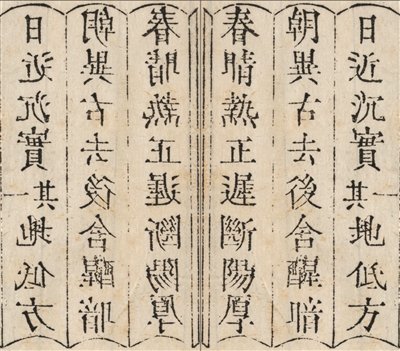 日近沉實其地低方
朝異古去後舍醒暗
春晴熱正遲斷陽厚
春晴熱正遲斷陽厚
朝異古去後舍醒暗
日近沉實其地低方